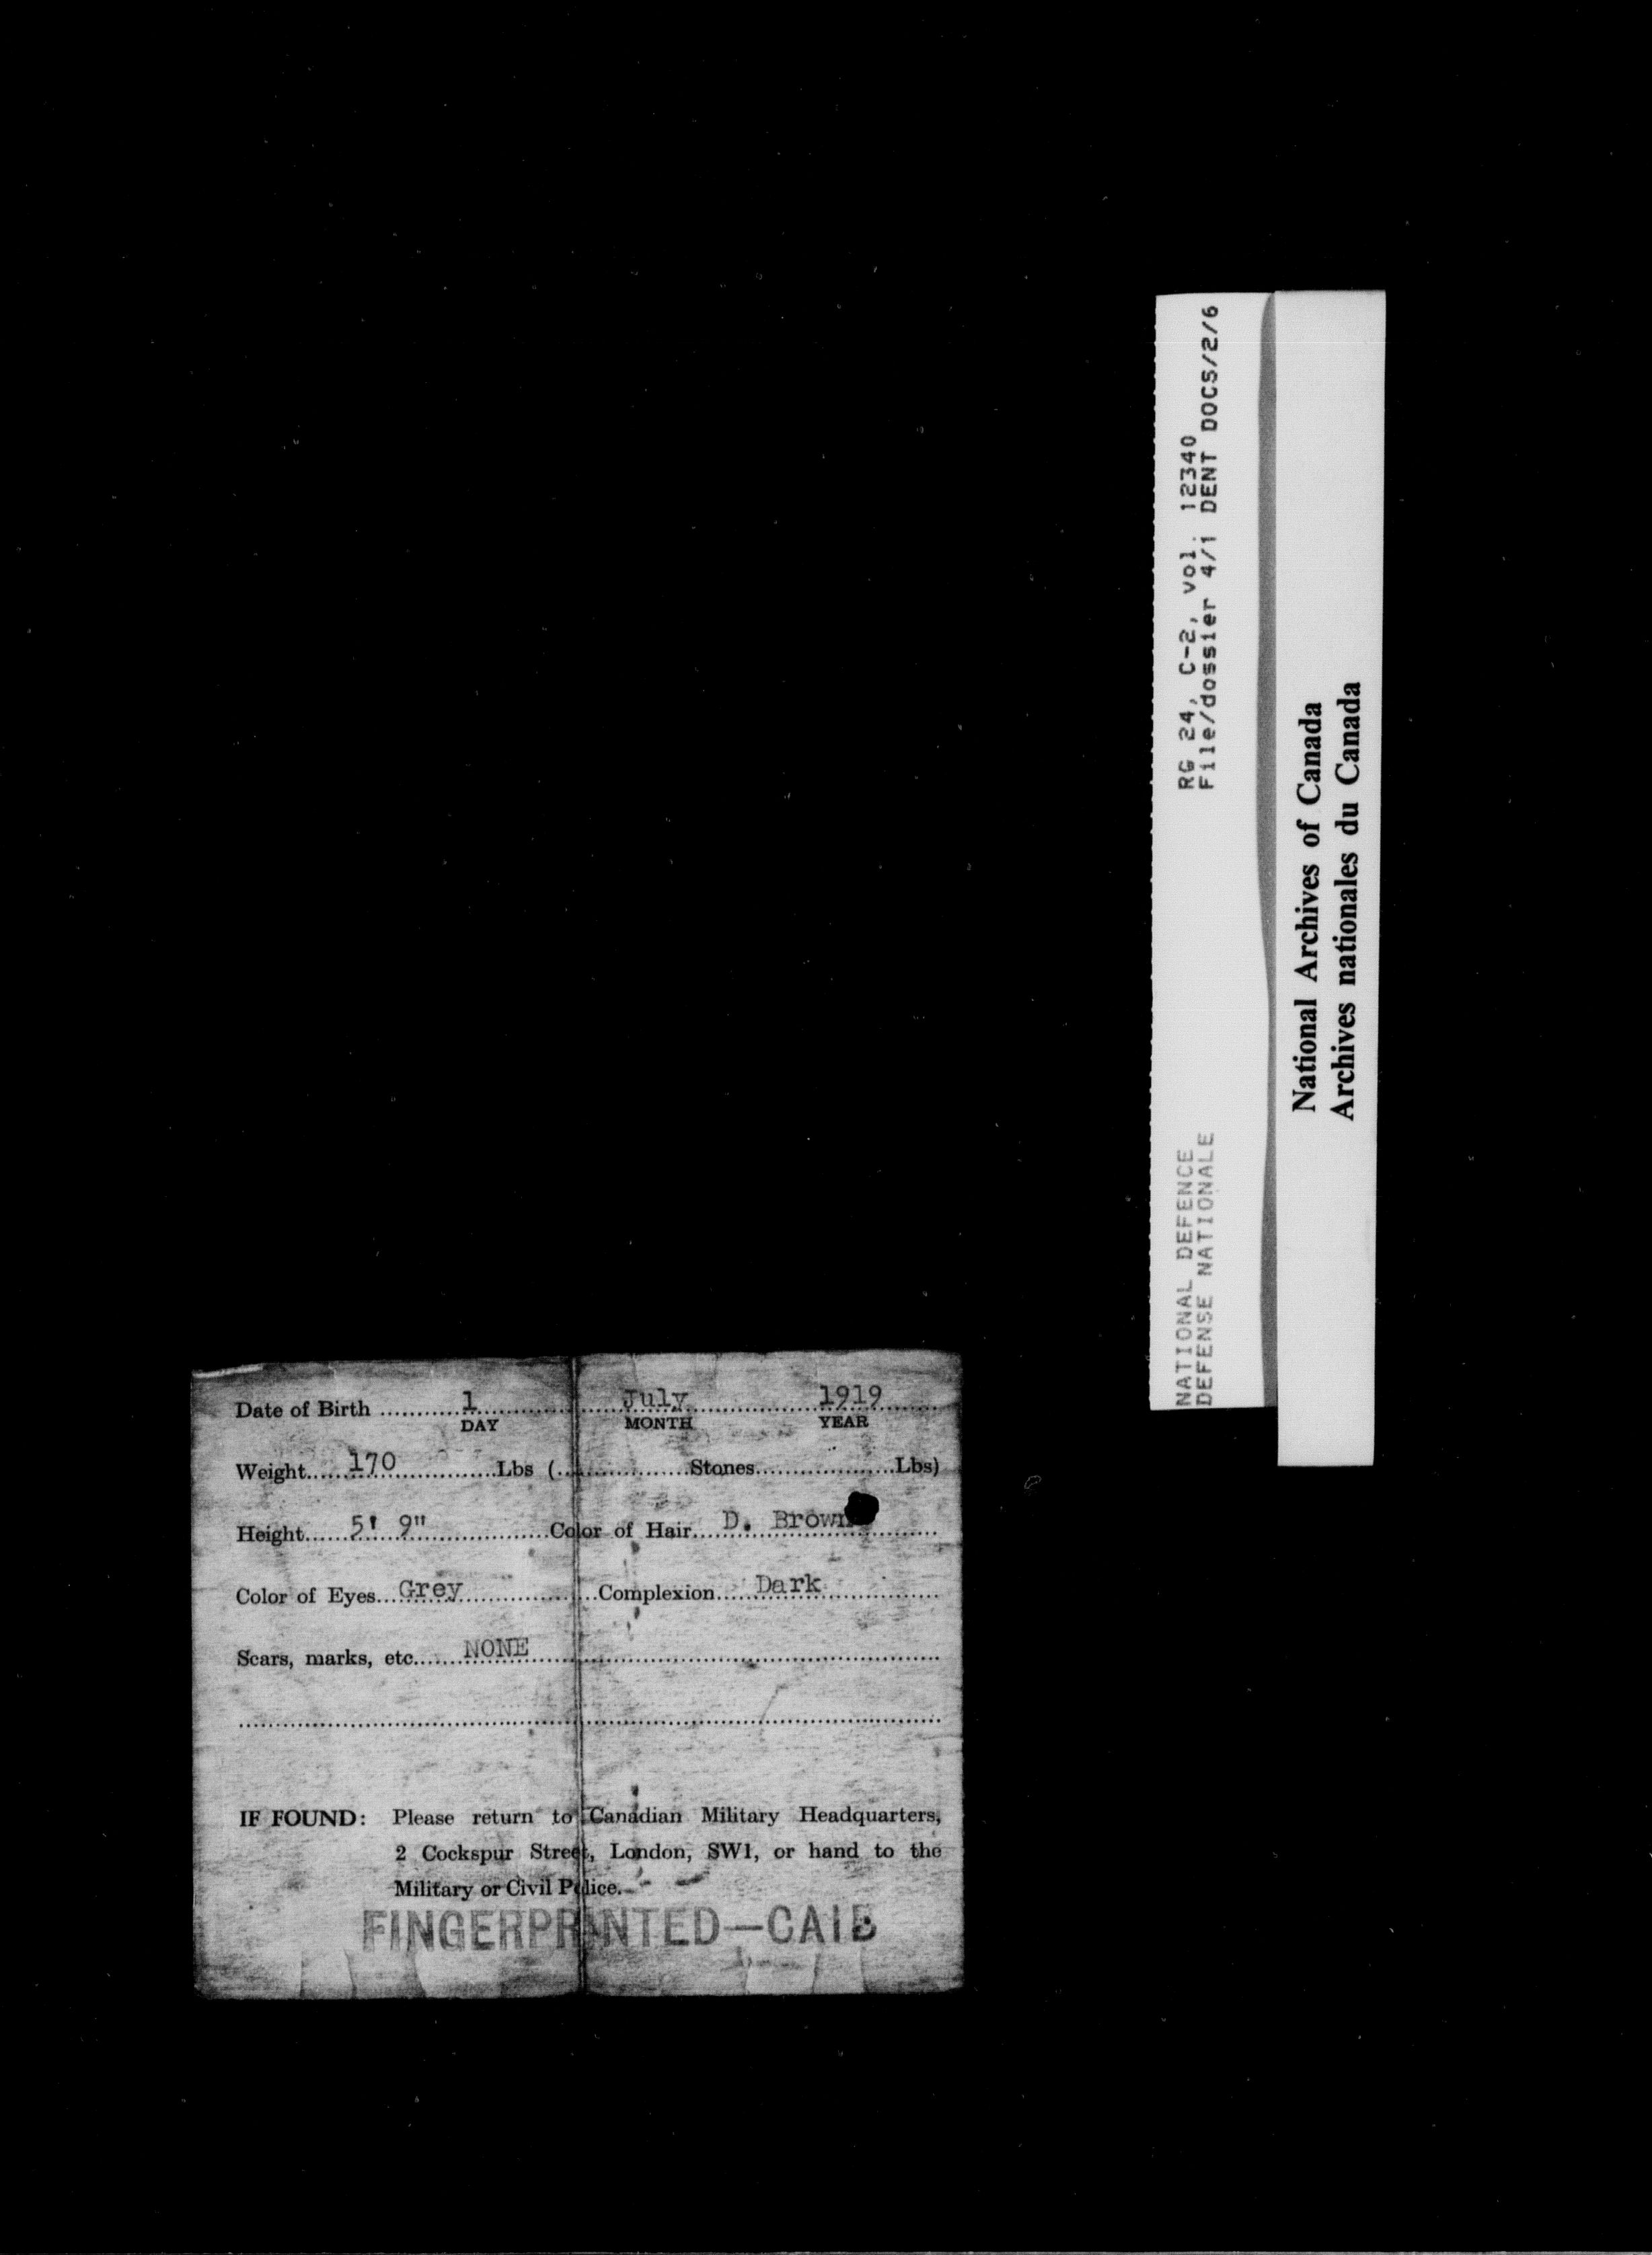 Date of Birth 1 July 1919
DAY MONTH YEAR
Weight 170 Lbs ( Stones Lbs)
Height 5' 9" Color of Hair D. Brown
Color of Eyes Grey Complexion Dark
Scars, marks, etc. NONE
IF FOUND: Please return to Canadian Military Headquarters,
2 Cockspur Street, London, SW1, or hand to the
Military or Civil Police.
FINGERPRINTED—CAIB
NATIONAL DEFENCE RG 24, C-2, vol. 12340
DEFENSE NATIONALE File/dossier 4/i DENT DOCS/2/6
National Archives of Canada
Archives nationales du Canada